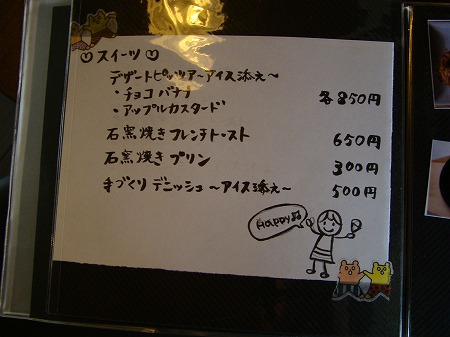 ♡スイーツ♡
デザートピッツア〜アイス添え〜
・チョコバナナ 各850円
・アップルカスタード
石窯焼きフレンチトースト 650円
石窯焼きプリン 300円
手づくりデニッシュ〜アイス添え〜 500円
Happy♫